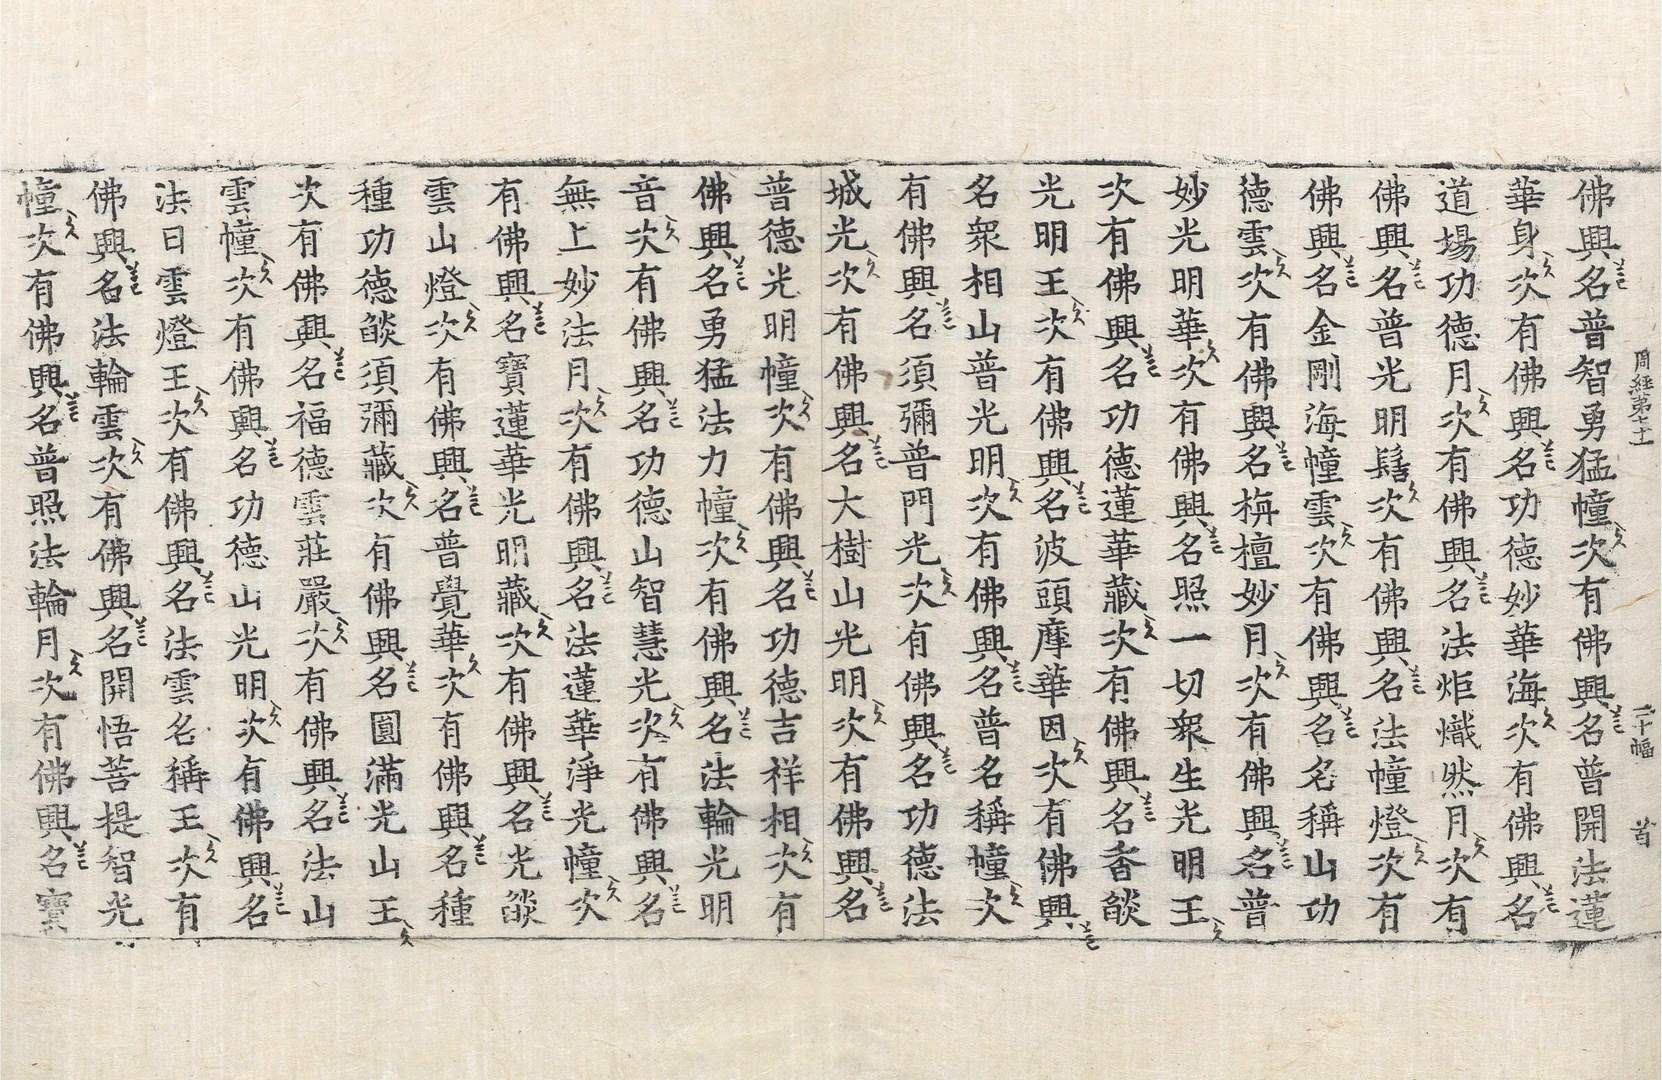 周經第七十一 二十幅 首
佛興名普智勇猛幢次有佛興名普開法蓮
華身次有佛興名功德妙華海次有佛興名
道場功德月次有佛興名法炬熾然月次有
佛興名普光明髻次有佛興名法幢燈次有
佛興名金剛海幢雲次有佛興名名稱山功
德雲次有佛興名栴檀妙月次有佛興名普
妙光明華次有佛興名照一切衆生光明王
次有佛興名功德蓮華藏次有佛興名香燄
光明王次有佛興名波頭摩華因次有佛興
名衆相山普光明次有佛興名普名稱幢次
有佛興名須彌普門光次有佛興名功德法
城光次有佛興名大樹山光明次有佛興名
普德光明幢次有佛興名功德吉祥相次有
佛興名勇猛法力幢次有佛興名法輪光明
音次有佛興名功德山智慧光次有佛興名
無上妙法月次有佛興名法蓮華淨光幢次
有佛興名寶蓮華光明藏次有佛興名光燄
雲山燈次有佛興名普覺華次有佛興名種
種功德燄須彌藏次有佛興名圓滿光山王
次有佛興名福德雲莊嚴次有佛興名法山
雲幢次有佛興名功德山光明次有佛興名
法日雲燈王次有佛興名法雲名稱王次有
佛興名法輪雲次有佛興名開悟菩提智光
幢次有佛興名普照法輪月次有佛興名寶